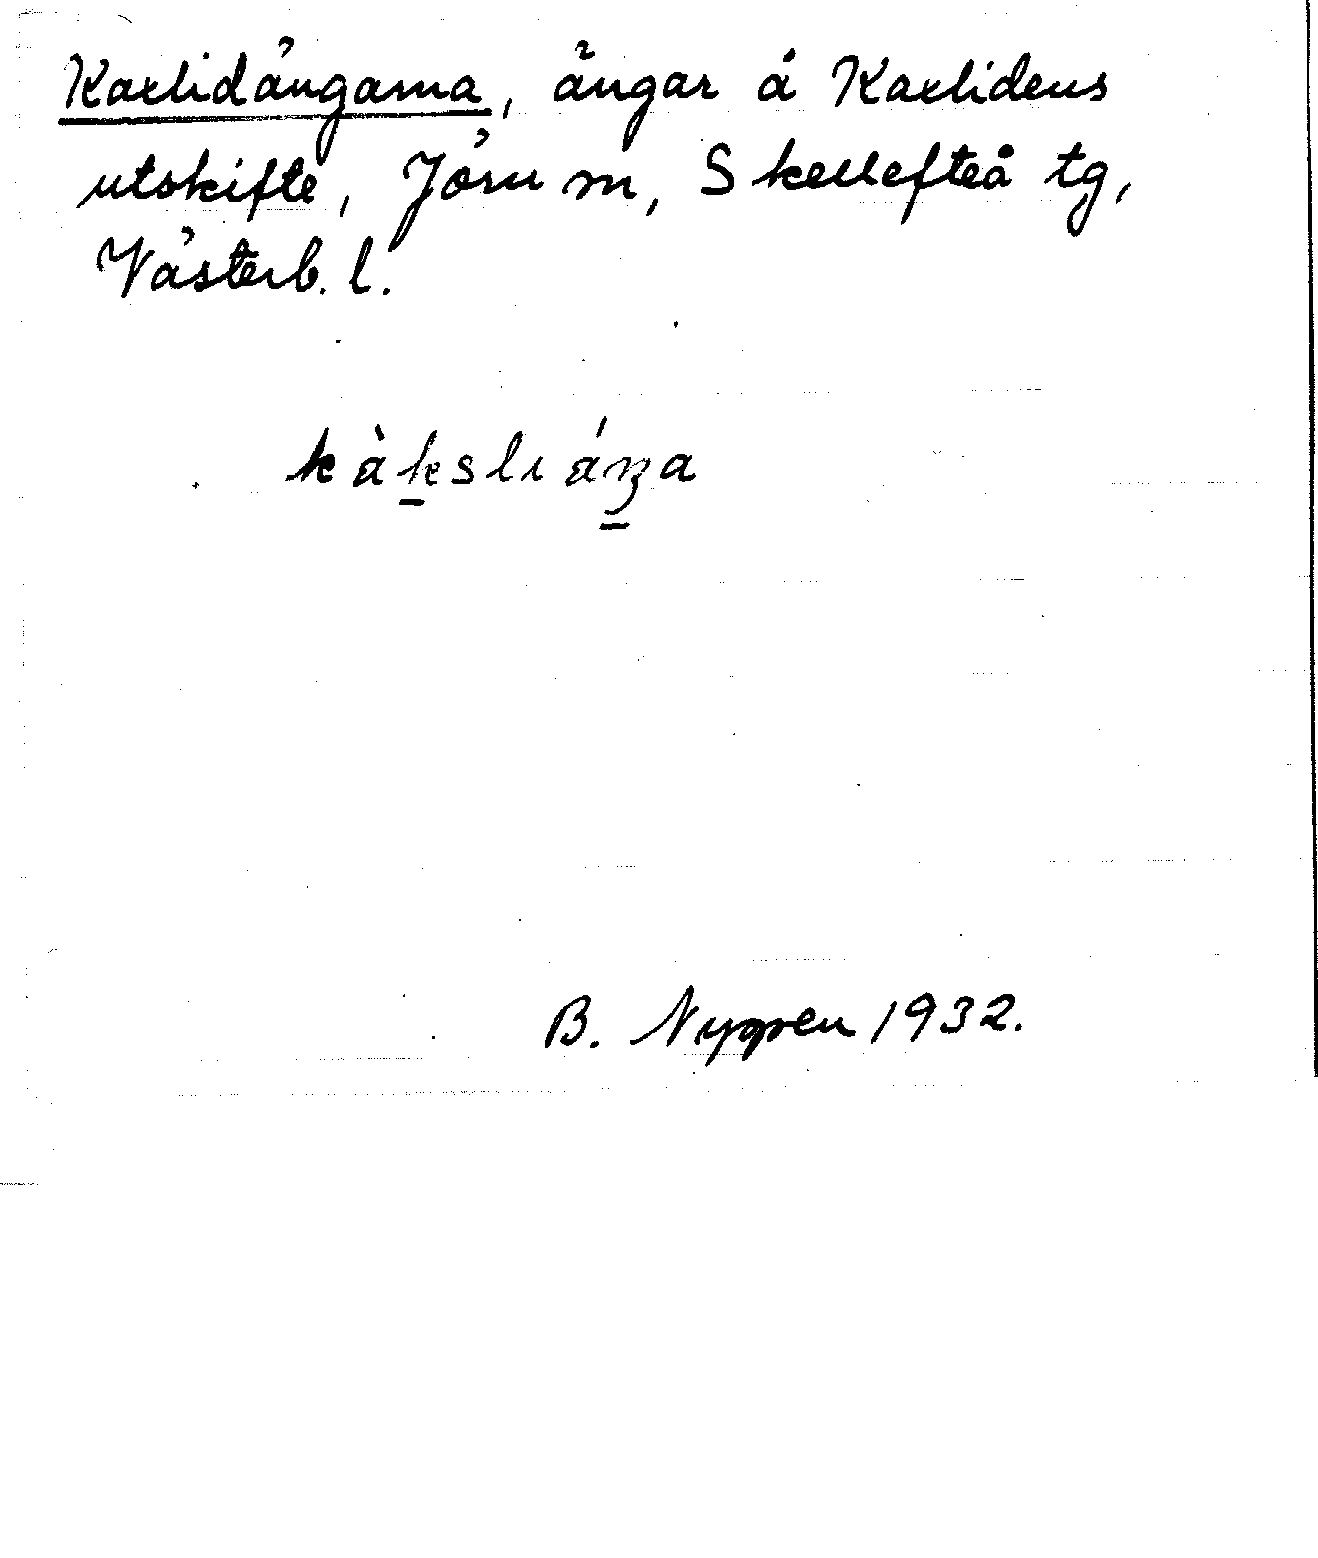 Kaxlidängarna, ängar å Kaxlidens
utskifte, Jörn m, Skellefteå tg,
Västerb. l.
kàksliáŋa
B. Nygren 1932.